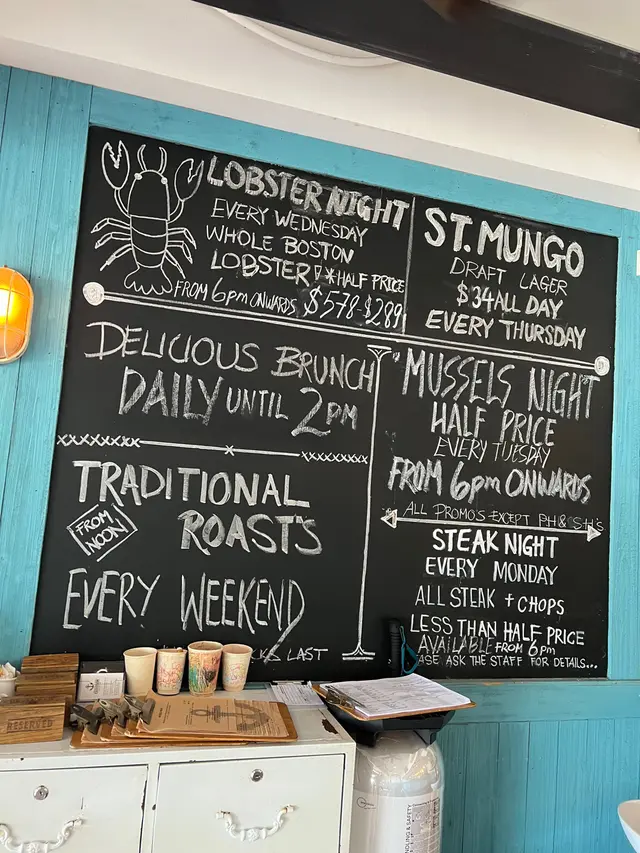 LOBSTER NIGHT
EVERY WEDNESDAY
WHOLE BOSTON
LOBSTER! *HALF PRICE
FROM 6pm ONWARDS $578-$289
ST. MUNGO
DRAFT LAGER
$34 ALL DAY
EVERY THURSDAY
DELICIOUS BRUNCH
DAILY UNTIL 2PM
"MUSSELS NIGHT
HALF PRICE
EVERY TUESDAY
FROM 6pm ONWARDS
ALL PROMO'S EXCEPT PH & SH'S
TRADITIONAL
ROAST'S
FROM
NOON
EVERY WEEKEND
LAST
STEAK NIGHT
EVERY MONDAY
ALL STEAK + CHOPS
LESS THAN HALF PRICE
AVAILABLE FROM 6pm
ASE ASK THE STAFF FOR DETAILS...
RESERVED